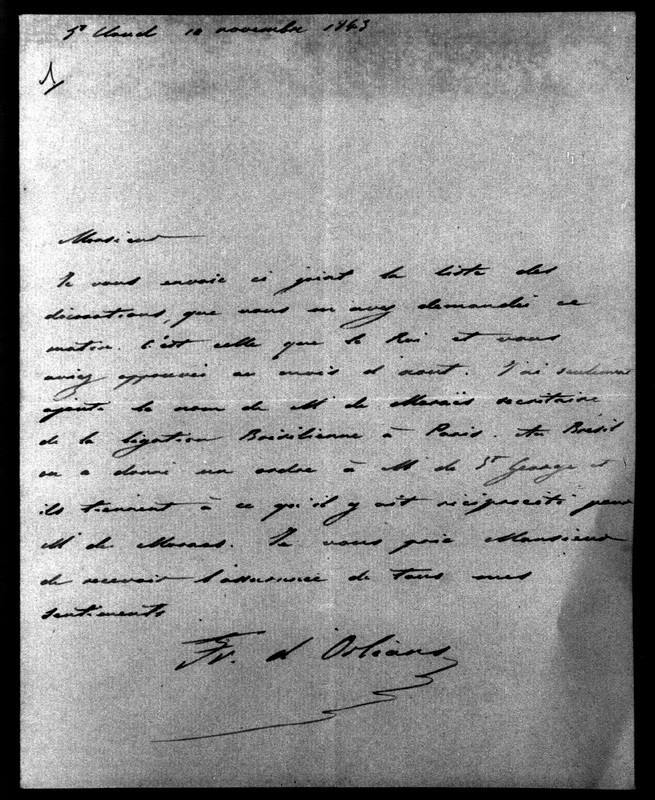 St Cloud 10 novembre 1843
Monsieur
Je vous envoie ci joint la liste des
décorations, que vous m'avez demandée ce
matin. C'est celle que le Roi et vous
aviez approuvée au mois d'aout. J'ai seulement
ajouté le nom de M de Moraës secrétaire
de la légation Brésilienne à Paris. Au Brésil
on a donné un ordre à M de St George et
ils tiennent à ce qu'il y ait réciprocité pour
M de Moraes. Je vous prie Monsieur
de recevoir l'assurance de tous mes
sentiments
Fr. d'Orléans